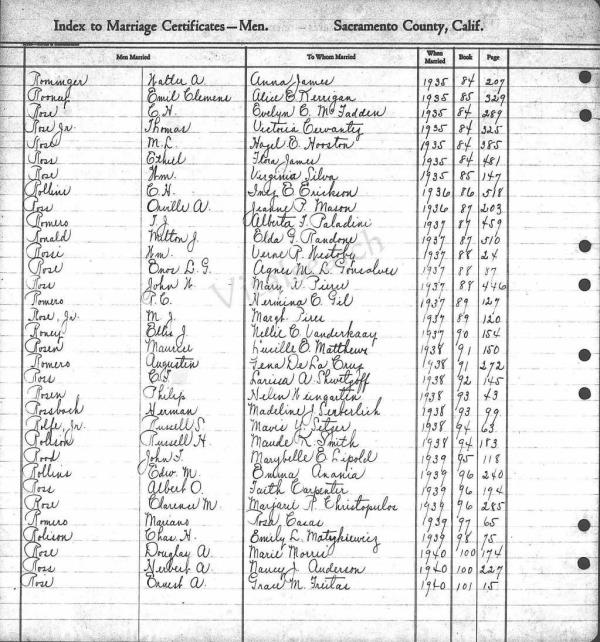 Index to Marriage Certificates—Men. Sacramento County, Calif.
Men Married To Whom Married When Married Book Page
Romminger Walter A. Anna James 1935 84 207
Rooney Emil Clemens Alice E. Kerrigan 1935 85 329
Rose C. H. Evelyn C. McFadden 1935 84 289
Rose Jr. Thomas Victoria Cervantes 1935 84 325
Rose M. L. Hazel E. Hooston 1935 84 385
Ross Ethel Flora James 1935 84 481
Rose Wm. Virginia Silva 1935 85 147
Rollins C. H. Inez E. Erickson 1936 86 518
Rose Orville A. Jeanne P. Mason 1936 87 203
Romero T. J. Alberta F. Paladini 1937 87 459
Ronald Wilton J. Elda G. Randone 1937 87 510
Rosie Wm. Verne R. Westoby 1937 88 24
Rose Enos L. G. Agnes M. L. Gonsalves 1937 88 87
Rose John W. Mary V. Pierce 1937 88 446
Romero P. C. Hermina C. Gil 1937 89 127
Rose, Jr. M. J. Margt. Pires 1937 89 120
Roney Ellis J. Nellie C. Vanderkaay 1937 90 154
Rosen Maurice Lucille E. Matthews 1938 91 150
Romero Augustin Lena De La Cruz 1938 91 272
Ross C. F. Larissa A. Shwetzoff 1938 92 145
Rosen Philip Helen Weingartin 1938 93 43
Rossbach Herman Madeline J. Serberlich 1938 93 99
Rolfe, Jr. Russell S. Mavis Y. Setzer 1938 94 63
Robison Russell H. Maude K. Smith 1938 94 183
Rood John F. Marybelle E. Lipold 1939 95 118
Rollins Edw. M. Emma Anania 1939 96 240
Ross Albert O. Faith Carpenter 1939 96 194
Rose Clarence M. Margaret R. Christopulos 1939 96 285
Romero Mariano Rosa Casas 1939 97 65
Robison Chas. H. Emily L. Matykiewicz 1939 98 75
Rose Douglas A. Marie Morris 1940 100 174
Ross Herbert A. Nancy J. Anderson 1940 100 227
Rose Ernest A. Grace M. Freitas 1940 101 15